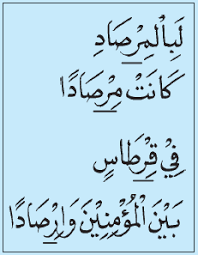 لَبِالْمِرْصَادِ
كَانَتْ مِرْصَادًا
فِيْ قِرْطَاسٍ
بَيْنَ الْمُؤْمِنِيْنَ وَاِرْصَادًا